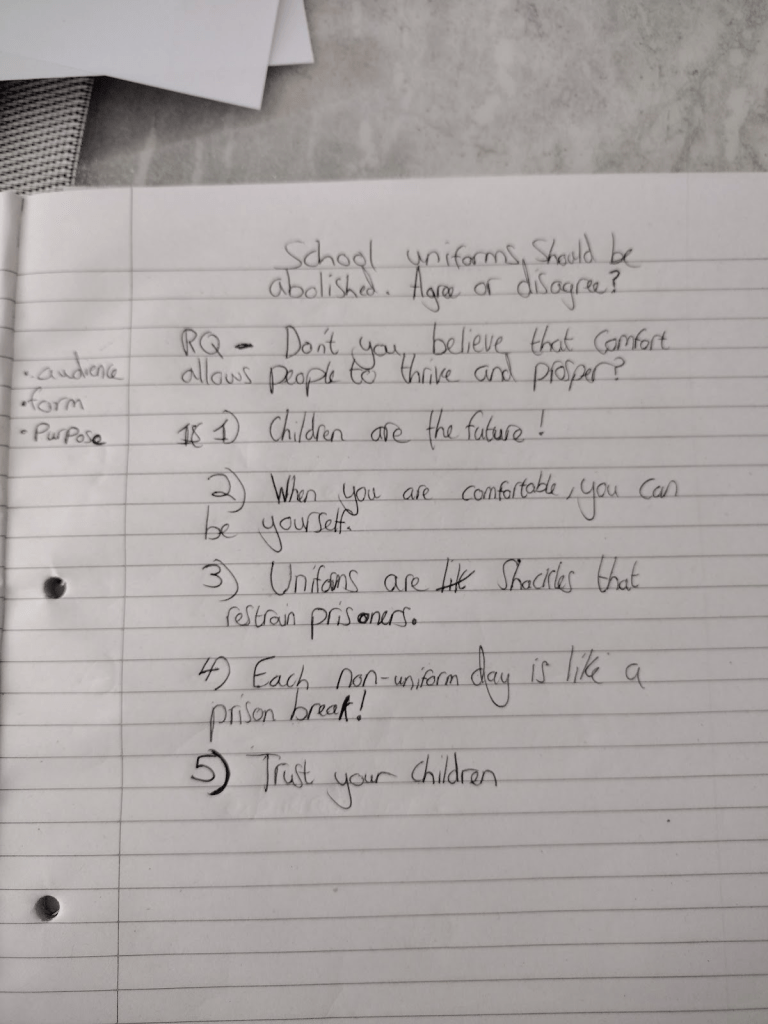 School uniforms, Should be
abolished. Agree or disagree?
RQ - Don't you believe that Comfort
allows people to thrive and prosper?
• audience
• form
• Purpose
1) Children are the future!
2) When you are comfortable, you can
be yourself.
3) Unifoms are like Shackles that
restrain prisoners.
4) Each non-uniform day is like a
prison break!
5) Trust your children